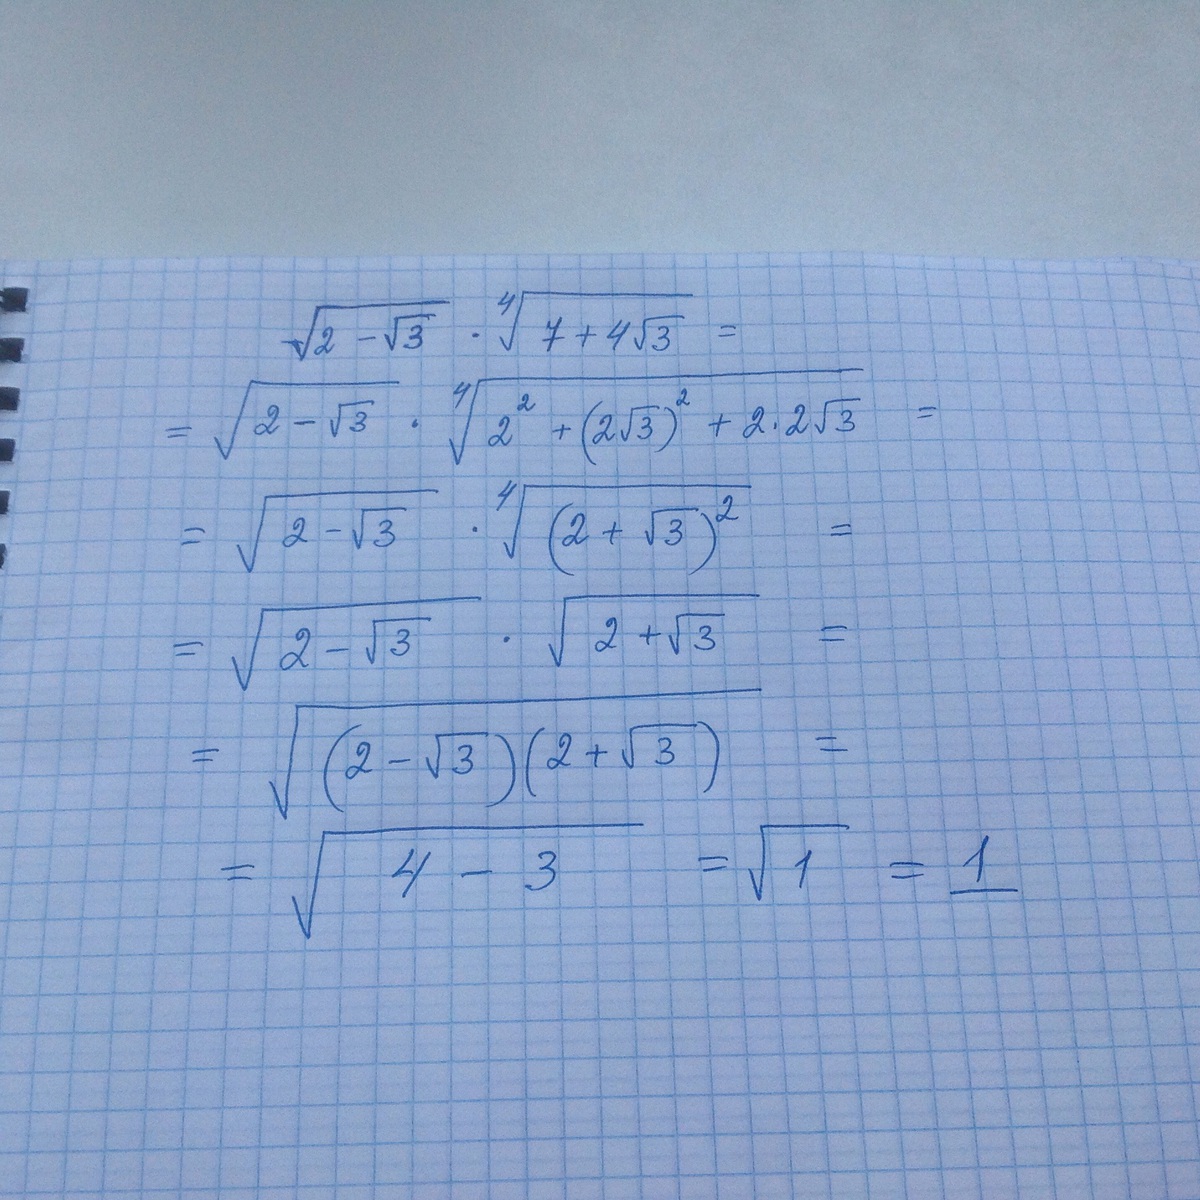 √(2 - √3) · ⁴√(7 + 4√3) =
= √(2 - √3) · ⁴√(2² + (2√3)² + 2·2√3) =
= √(2 - √3) · ⁴√((2 + √3)²) =
= √(2 - √3) · √(2 + √3) =
= √((2 - √3)(2 + √3)) =
= √(4 - 3) = √1 = 1